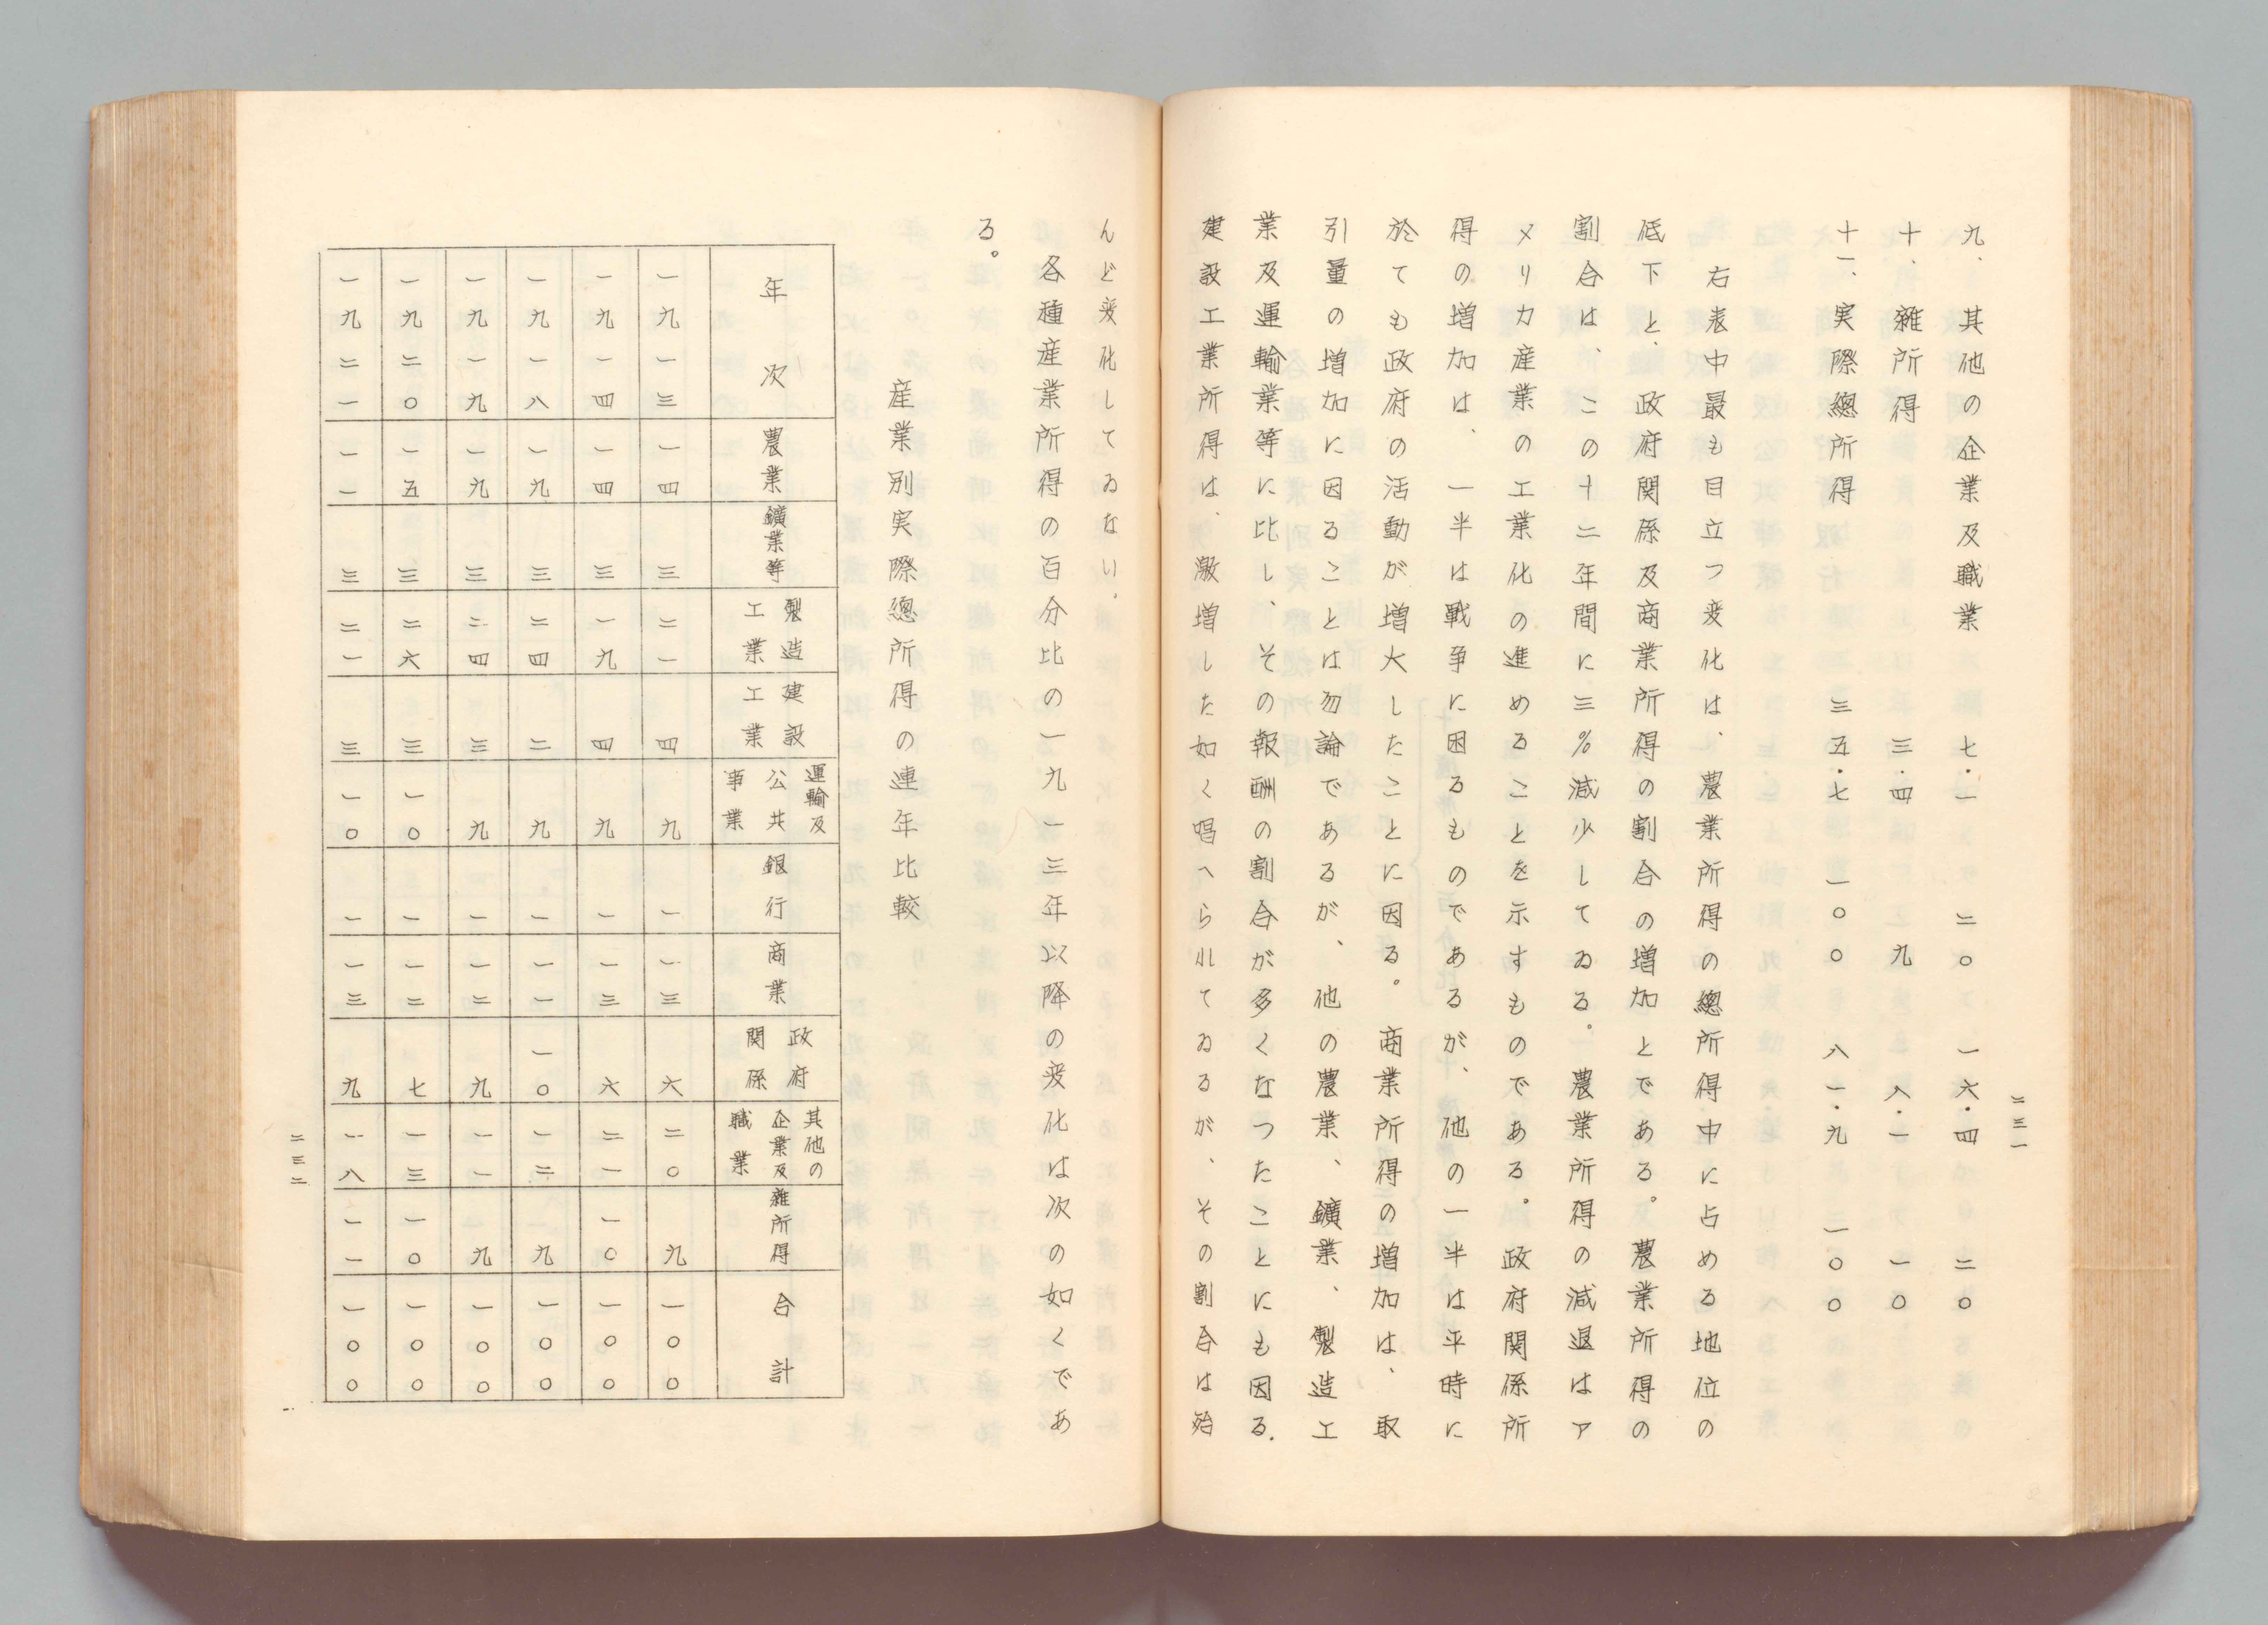 二三一
九、其他の企業及職業　七・一　二〇　一六・四　二〇
十、雑所得　三・四　九　八・一　一〇
十一、実際總所得　三五・七　一〇〇　八一・九　一〇〇
右表中最も目立つ変化は、農業所得の總所得中に占める地位の
低下と、政府関係及商業所得の割合の増加とである。農業所得の
割合は、この十二年間に三％減少してゐる。農業所得の減退はア
メリカ産業の工業化の進めることを示すものである。政府関係所
得の増加は、一半は戦争に因るものであるが、他の一半は平時に
於ても政府の活動が増大したことに因る。商業所得の増加は、取
引量の増加に因ることは勿論であるが、他の農業、鑛業、製造工
業及運輸業等に比し、その報酬の割合が多くなつたことにも因る.
建設工業所得は、激増した如く唱へられてゐるが、その割合は殆
んど変化してゐない.
各種産業所得の百分比の一九一三年以降の変化は次の如くであ
る。
産業別実際總所得の連年比較
年次　農業　鑛業等　製造工業　建設工業　運輸及公共事業　銀行　商業　政府関係　其他の企業及職業　雑所得　合計
一九一三　一四　三　二一　四　九　一　一三　六　二〇　九　一〇〇
一九一四　一四　三　一九　四　九　一　一三　六　二一　一〇　一〇〇
一九一八　一九　三　二四　二　九　一　一一　一〇　一二　九　一〇〇
一九一九　一九　三　二四　三　九　一　一二　九　一一　九　一〇〇
一九二〇　一五　三　二六　三　一〇　一　一二　七　一三　一〇　一〇〇
一九二一　一一　三　二一　三　一〇　一　一三　九　一八　一一　一〇〇
二三二